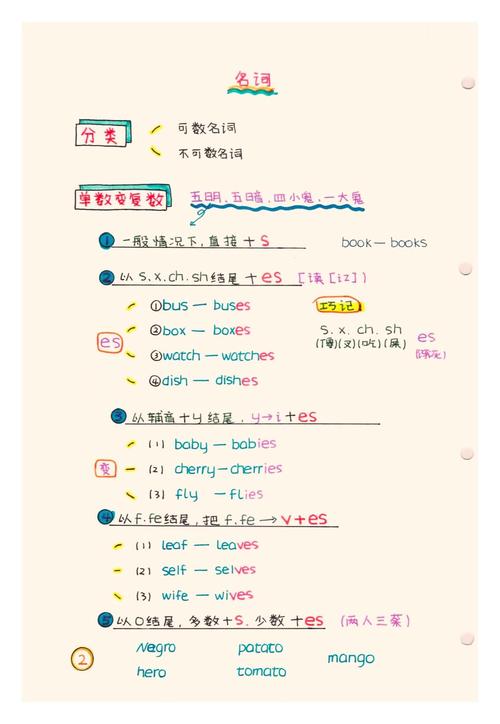 名词
分类
可数名词
不可数名词
单数变复数 五明,五暗,四小鬼,一大鬼
① 一般情况下,直接+s book—books
② 以s.x.ch.sh结尾+es [读[iz])
①bus — buses 巧记
②box — boxes s.x.ch.sh es
es
③watch — watches
④dish — dishes
③ 以辅音+y结尾, y→i+es
(1) baby — babies
变 (2) cherry—cherries
(3) fly —flies
④ 以f.fe结尾,把f.fe→v+es
(1) leaf — leaves
(2) self — selves
(3) wife — wives
⑤ 以O结尾,多数+s.少数+es (两人三菜)
Negro patato mango
hero tomato
2